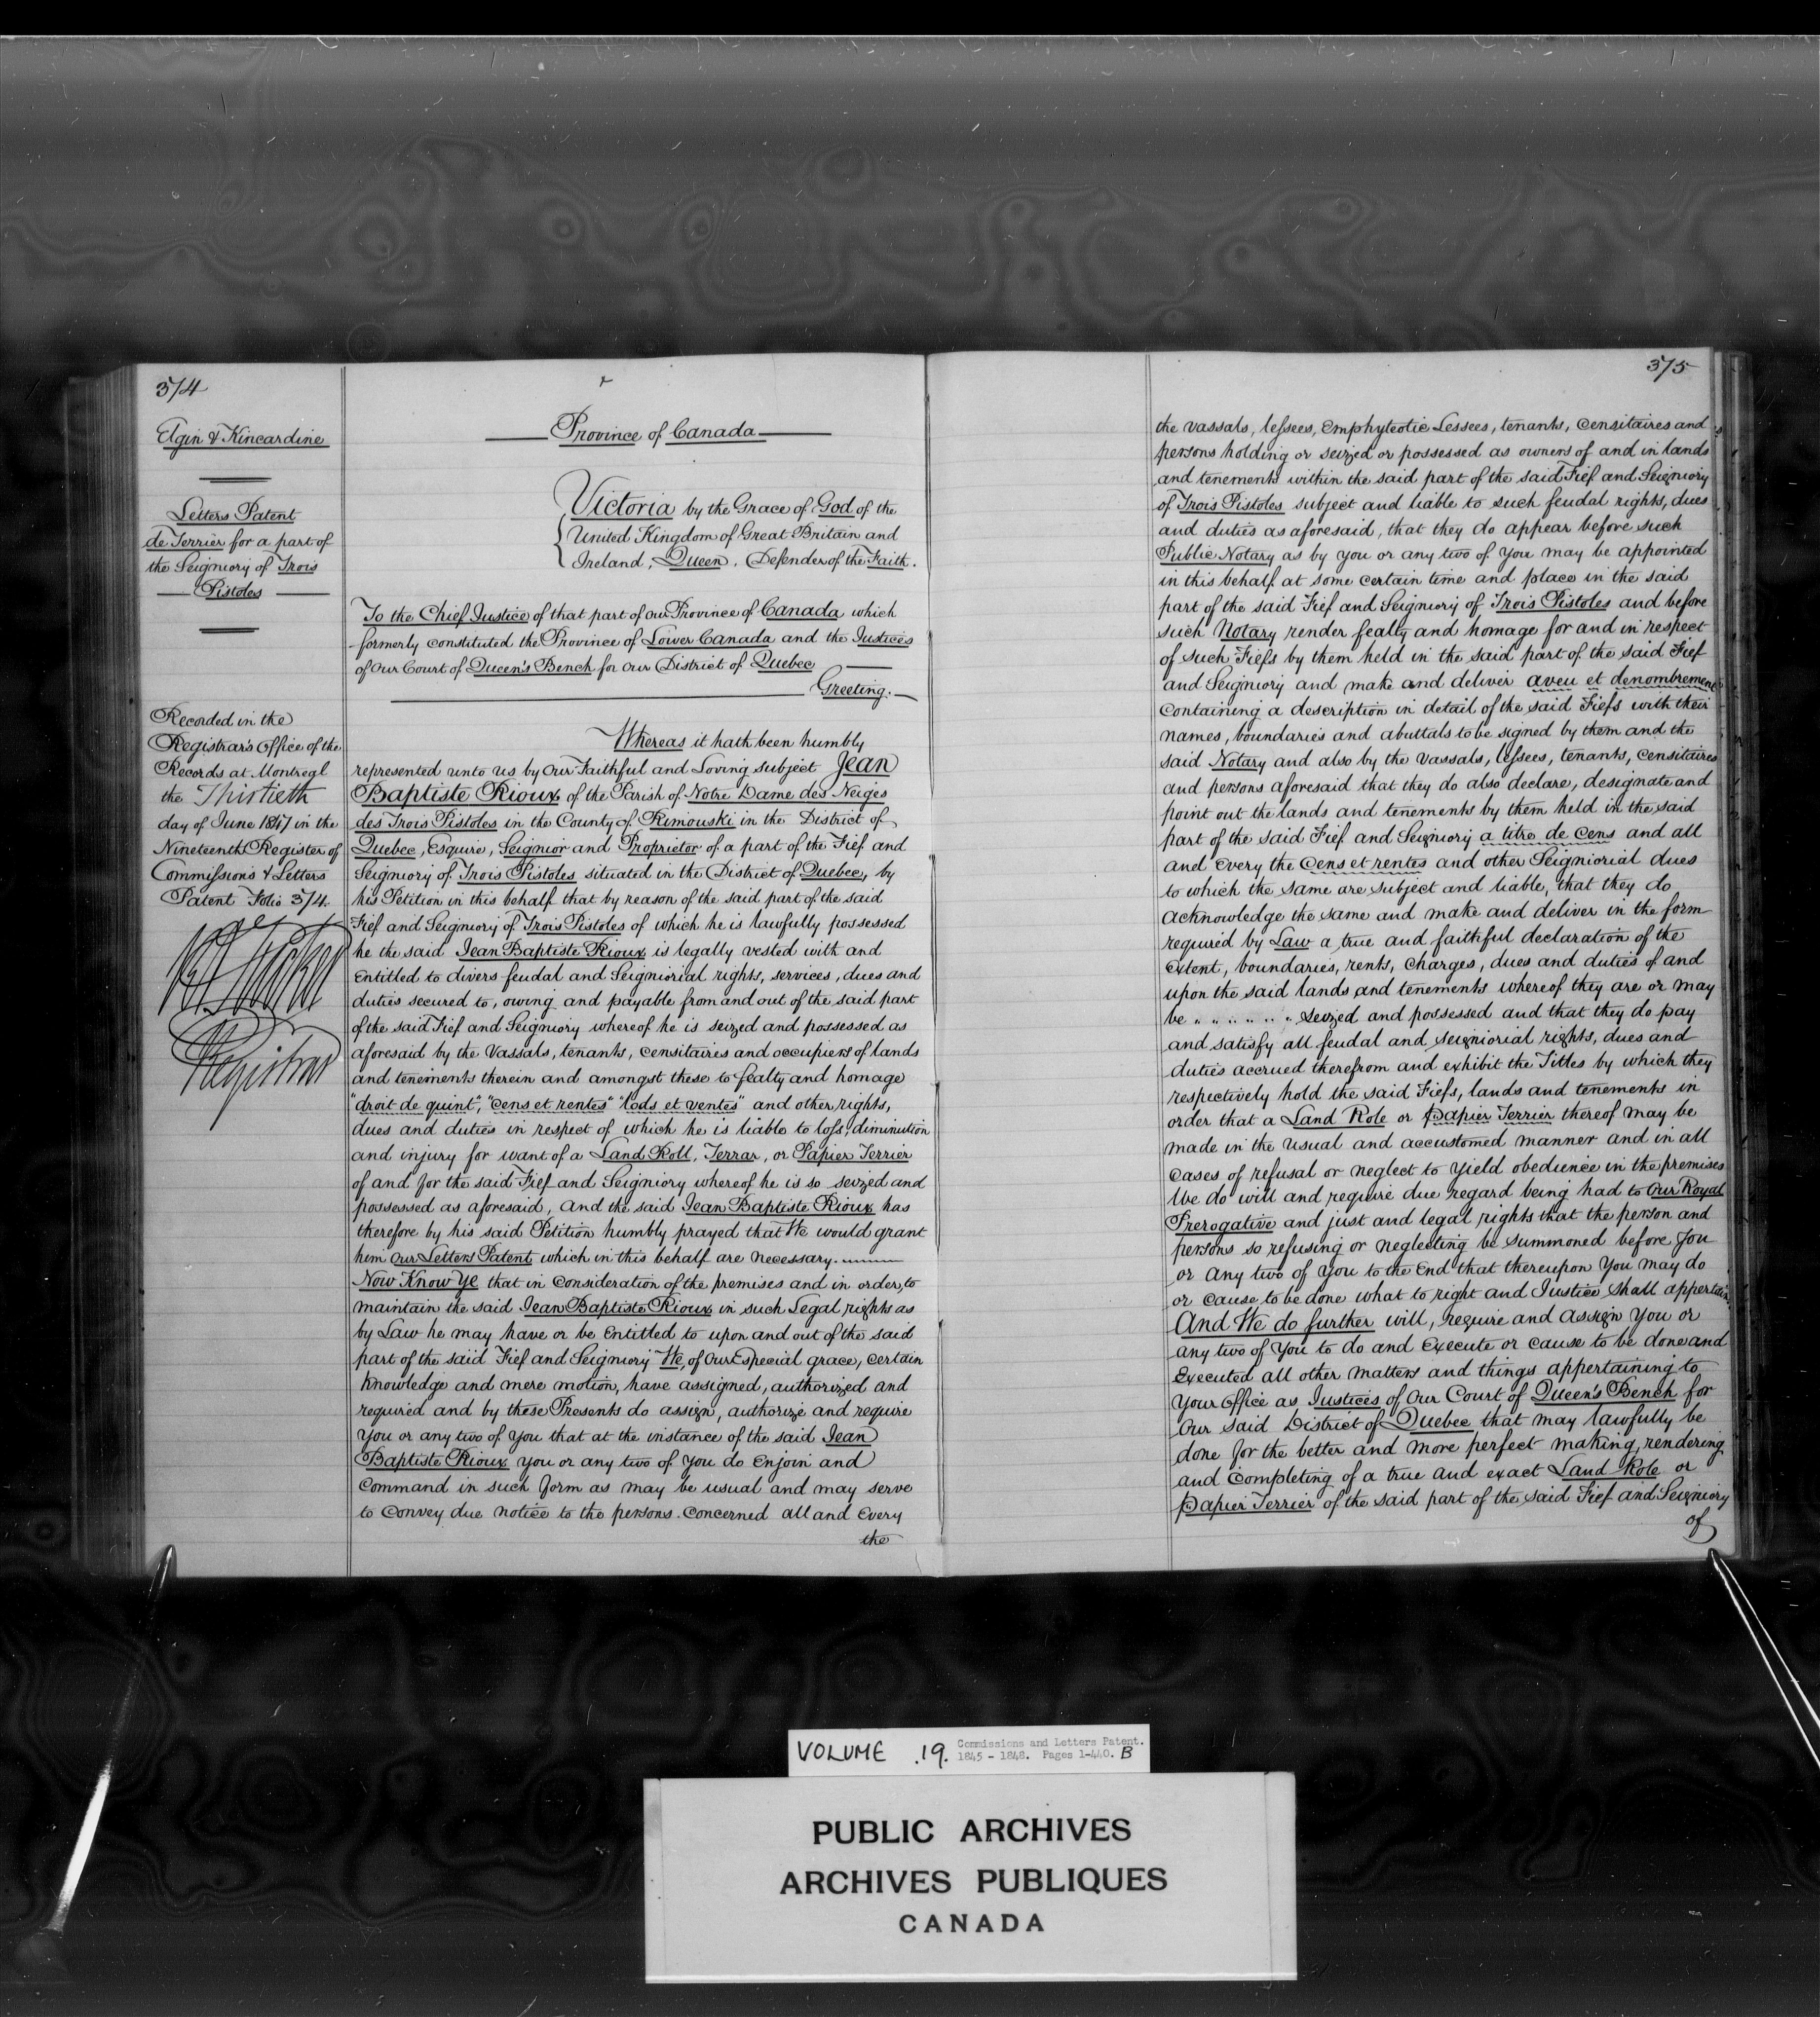 374
Elgin & Kincardine
Letters Patent
de Terrier for a part of
the Seigniory of Trois
Pistoles
Recorded in the
Registrar's Office of the
Records at Montreal
the Thirtieth
day of June 1847 in the
Nineteenth Register of
Commissions & Letters
Patent Folio 374.
Registrar
Province of Canada
Victoria by the Grace of God of the
United Kingdom of Great Britain and
Ireland, Queen, Defender of the Faith.
To the Chief Justice of that part of our Province of Canada which
formerly constituted the Province of Lower Canada and the Justices
of our Court of Queen's Bench for our District of Quebec
Greeting.
Whereas it hath been humbly
represented unto us by Our Faithful and Loving subject Jean
Baptiste Rioux of the Parish of Notre Dame des Neiges
des Trois Pistoles in the County of Rimouski in the District of
Quebec, Esquire, Seignior and Proprietor of a part of the Fief and
Seigniory of Trois Pistoles situated in the District of Quebec, by
his Petition in this behalf that by reason of the said part of the said
Fief and Seigniory of Trois Pistoles of which he is lawfully possessed
he the said Jean Baptiste Rioux is legally vested with and
entitled to divers feudal and Seigniorial rights, services, dues and
duties secured to, owing and payable from and out of the said part
of the said Fief and Seigniory whereof he is seized and possessed as
aforesaid by the Vassals, tenants, censitaires and occupiers of lands
and tenements therein and amongst these to fealty and homage
"droit de quint", "cens et rentes" "lods et ventes" and other rights,
dues and duties in respect of which he is liable to loss, diminution
and injury for want of a Land Roll, Terrar, or Papier Terrier
of and for the said Fief and Seigniory whereof he is so seized and
possessed as aforesaid, and the said Jean Baptiste Rioux has
therefore by his said Petition humbly prayed that We would grant
him our Letters Patent which in this behalf are necessary.
Now Know Ye that in consideration of the premises and in order to
maintain the said Jean Baptiste Rioux in such Legal rights as
by Law he may have or be entitled to upon and out of the said
part of the said Fief and Seigniory We, of our Especial grace, certain
knowledge and mere motion, have assigned, authorized and
required and by these Presents do assign, authorize and require
you or any two of you that at the instance of the said Jean
Baptiste Rioux you or any two of you do enjoin and
command in such form as may be usual and may serve
to convey due notice to the persons concerned all and every
the
375
the vassals, lessees, Emphyteotic Lessees, tenants, censitaires and
persons holding or seized or possessed as owners of and in lands
and tenements within the said part of the said Fief and Seigniory
of Trois Pistoles subject and liable to such feudal rights, dues
and duties as aforesaid, that they do appear before such
Public Notary as by you or any two of you may be appointed
in this behalf at some certain time and place in the said
part of the said Fief and Seigniory of Trois Pistoles and before
such Notary render fealty and homage for and in respect
of such Fiefs by them held in the said part of the said Fief
and Seigniory and make and deliver aveu et denombrement
containing a description in detail of the said Fiefs with their
names, boundaries and abuttals to be signed by them and the
said Notary and also by the vassals, lessees, tenants, censitaires
and persons aforesaid that they do also declare, designate and
point out the lands and tenements by them held in the said
part of the said Fief and Seigniory a titre de Cens and all
and every the Cens et rentes and other Seigniorial dues
to which the same are subject and liable, that they do
acknowledge the same and make and deliver in the form
required by Law a true and faithful declaration of the
extent, boundaries, rents, charges, dues and duties of and
upon the said lands and tenements whereof they are or may
be " " " " " " seized and possessed and that they do pay
and satisfy all feudal and seigniorial rights, dues and
duties accrued therefrom and exhibit the Titles by which they
respectively hold the said Fiefs, lands and tenements in
order that a Land Role or Papier Terrier thereof may be
made in the usual and accustomed manner and in all
cases of refusal or neglect to yield obedience in the premises
We do will and require due regard being had to Our Royal
Prerogative and just and legal rights that the person and
persons so refusing or neglecting be summoned before you
or any two of you to the end that thereupon you may do
or cause to be done what to right and Justice shall appertain.
And We do further will, require and assign you or
any two of you to do and execute or cause to be done and
executed all other matters and things appertaining to
your office as Justices of our Court of Queen's Bench for
our said District of Quebec that may lawfully be
done for the better and more perfect making, rendering
and completing of a true and exact Land Role or
Papier Terrier of the said part of the said Fief and Seigniory
of
VOLUME .19. Commissions and Letters Patent.
1845 - 1848. Pages 1-440. B
PUBLIC ARCHIVES
ARCHIVES PUBLIQUES
CANADA